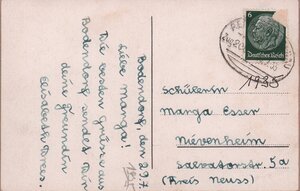 Bodendorf, den 29.7.
1935
Liebe Marga!
Die besten Grüße aus
Bodendorf sendet Dir
deine Freundin
Elisabeth
6
Deutsches Reich
1935
Schülerin
Marga Esser
Nievenheim
Salvatorstr. 5a
(Kreis Neuss)